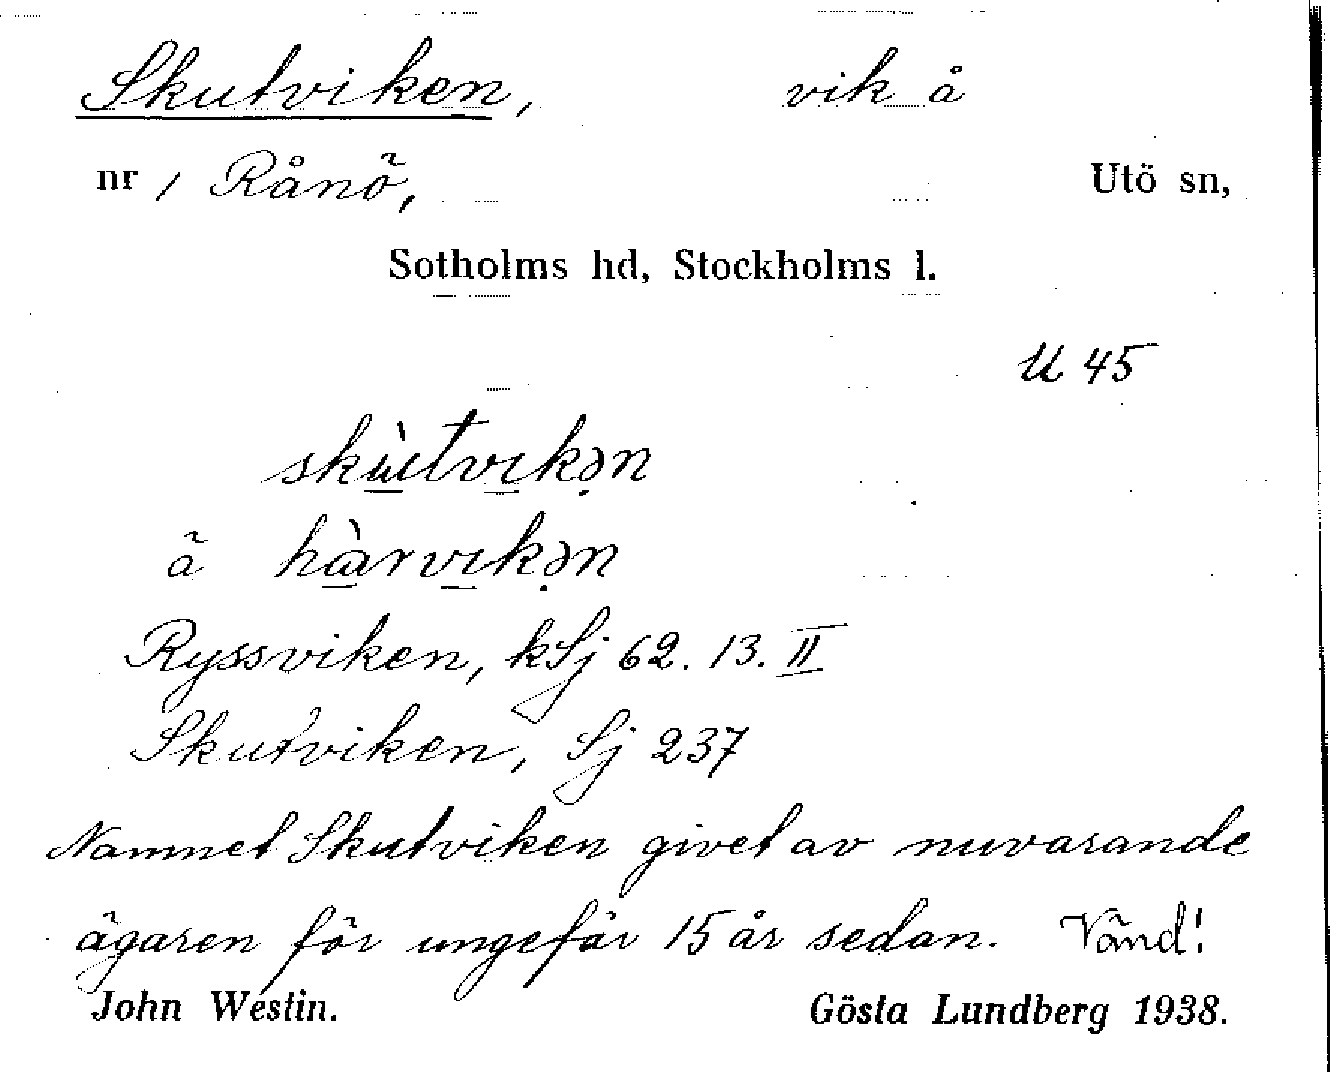 Skutviken, vik å
nr 1 Rånö, Utö sn,
Sotholms hd, Stockholms l.
U 45
skùtvıkən
ä hàrvıkən
Ryssviken, kSj 62. 13. II
Skutviken, Sj 237
Namnet Skutviken givet av nuvarande
ägaren för ungefär 15 år sedan. Vänd!
John Westin. Gösta Lundberg 1938.